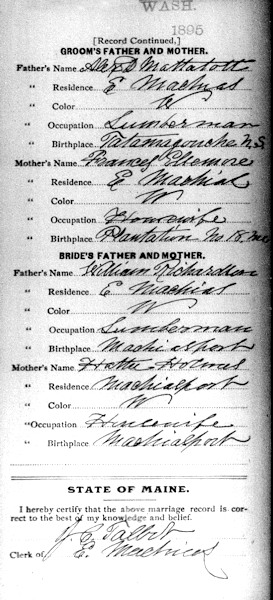 WASH.
1895
[Record Continued.]
GROOM'S FATHER AND MOTHER.
Father's Name, Alex D Mattatall
" Residence, E Machias
" Color W
" Occupation Lumberman
" Birthplace, Tatamagouche N.S.
Mother's Name, Frances Elsemore
" Residence, E Machias
" Color W
" Occupation Housewife
" Birthplace Plantation No 18, Me
BRIDE'S FATHER AND MOTHER.
Father's Name, William Richardson
" Residence, E Machias
" Color W
" Occupation Lumberman
" Birthplace Machiasport
Mother's Name, Hattie Holmes
" Residence Machiasport
" Color W
" Occupation Housewife
" Birthplace Machiasport
STATE OF MAINE.
I hereby certify that the above marriage record is cor-
rect to the best of my knowledge and belief.
J. C. Talbot
Clerk of E. Machias